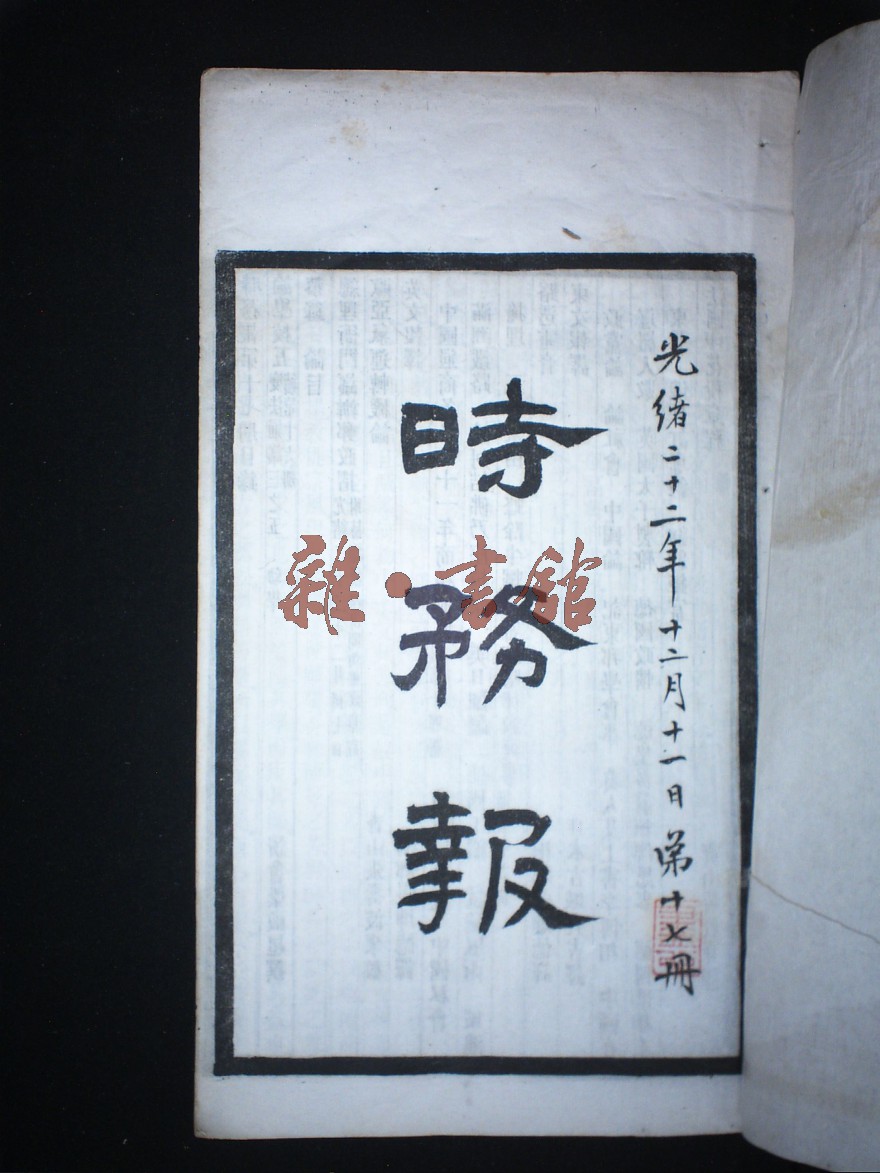 光緒二十二年十二月十一日 第十七冊
時務報
雜·書館